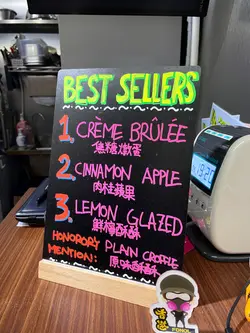 BEST SELLERS
1. CRÈME BRÛLÉE
焦糖燉蛋
2. CINNAMON APPLE
肉桂蘋果
3. LEMON GLAZED
鮮檸酥酥
HONORORY MENTION: PLAIN CROFFLE
原味酥酥